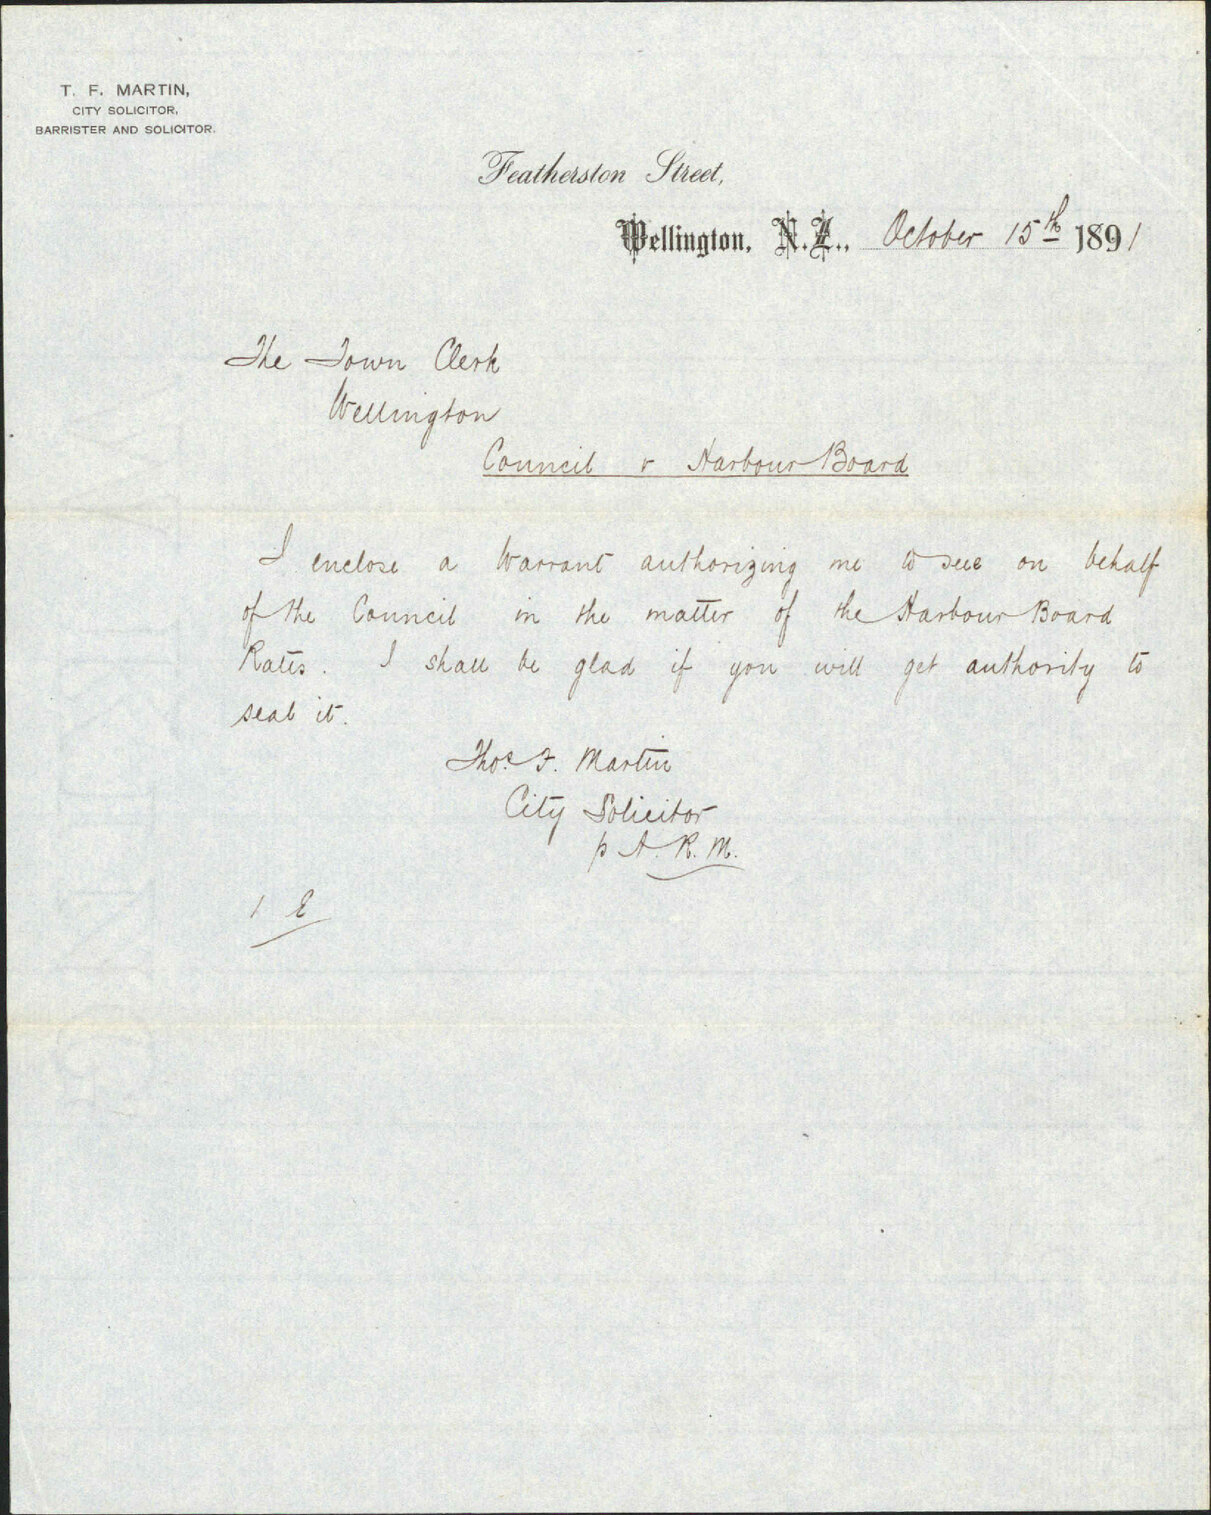 T. F. MARTIN,
CITY SOLICITOR,
BARRISTER AND SOLICITOR.
Featherston Street,
Wellington, N.Z., October 15th 1891
The Town Clerk
Wellington
Council v Harbour Board
I enclose a Warrant authorizing me to sue on behalf
of the Council in the matter of the Harbour Board
Rates. I shall be glad if you will get authority to
seal it.
Thos. F. Martin
City Solicitor
p A. R. M.
1 E